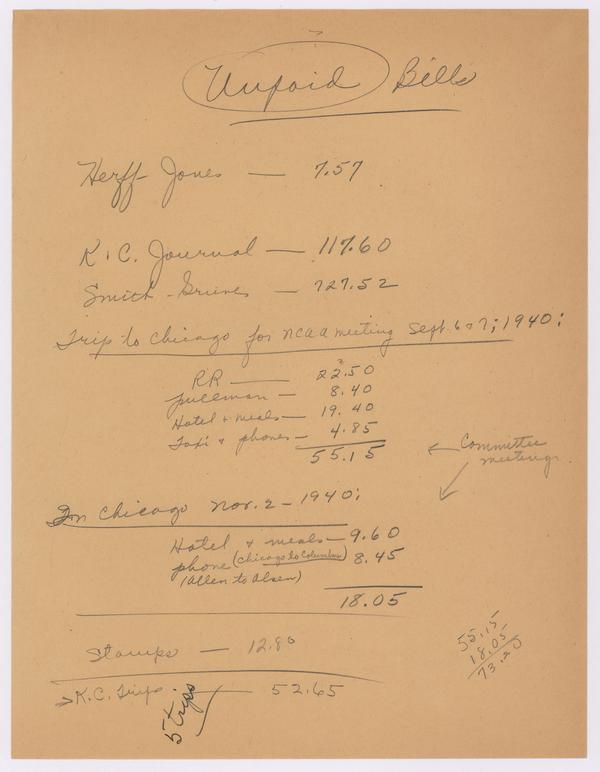 Unpaid Bills
Herff-Jones — 7.57
K.C. Journal — 117.60
Smith-Grieves — 727.52
Trip to Chicago for NCAA meeting Sept. 6 & 7; 1940:
RR — 22.50
pullman — 8.40
Hotel & meals — 19.40
Taxi & phones — 4.85
55.15
← Committee
meetings
In Chicago Nov. 2 - 1940:
Hotel & meals — 9.60
phone (Chicago to Columbus) 8.45
(Allen to Olsen)
18.05
Stamps — 12.80
55.15
18.05
73.20
> K.C. Trips — 52.65
5 trips